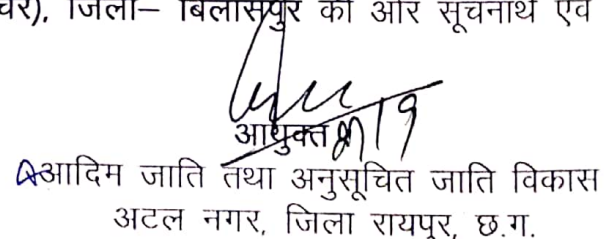 चर), जिला– बिलासपुर की ओर सूचनार्थ एवं
आयुक्त
आदिम जाति तथा अनुसूचित जाति विकास
अटल नगर, जिला रायपुर, छ.ग.